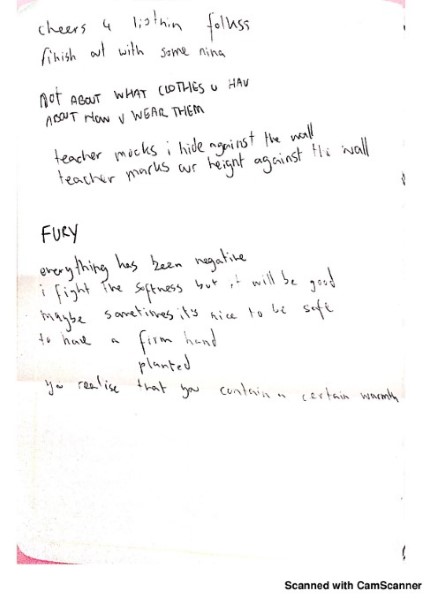 cheers 4 listnin folkss
finish out with some nina
NOT ABOUT WHAT CLOTHES U HAV
ABOUT HOW U WEAR THEM
teacher mocks i hide against the wall
teacher marks our height against the wall
FURY
everything has been negative
i fight the softness but it will be good
maybe sometimes its nice to be safe
to have a firm hand
planted
you realise that you contain a certain warmth
Scanned with CamScanner